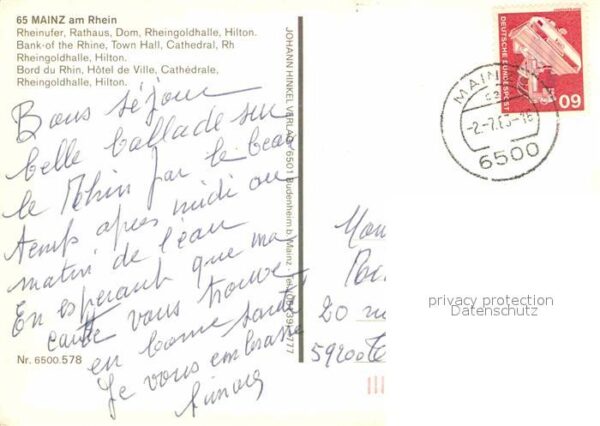 65 MAINZ am Rhein
Rheinufer, Rathaus, Dom, Rheingoldhalle, Hilton.
Bank-of the Rhine, Town Hall, Cathedral, Rh
Rheingoldhalle, Hilton.
Bord du Rhin, Hôtel de Ville, Cathédrale,
Rheingoldhalle, Hilton.
Bons séjour
belle ballade sur
le Rhin par le beau
temps apres midi ou
matin de l'eau
En esperant que ma
carte vous trouve
en bonne santé
Je vous embrasse
Nr. 6500.578
JOHANN HINKEL VERLAG 6501 Budenheim b. Mainz - Tel.
DEUTSCHE BUNDESPOST
60
MAINZ
-2.-7.
6500
20
privacy protection
Datenschutz